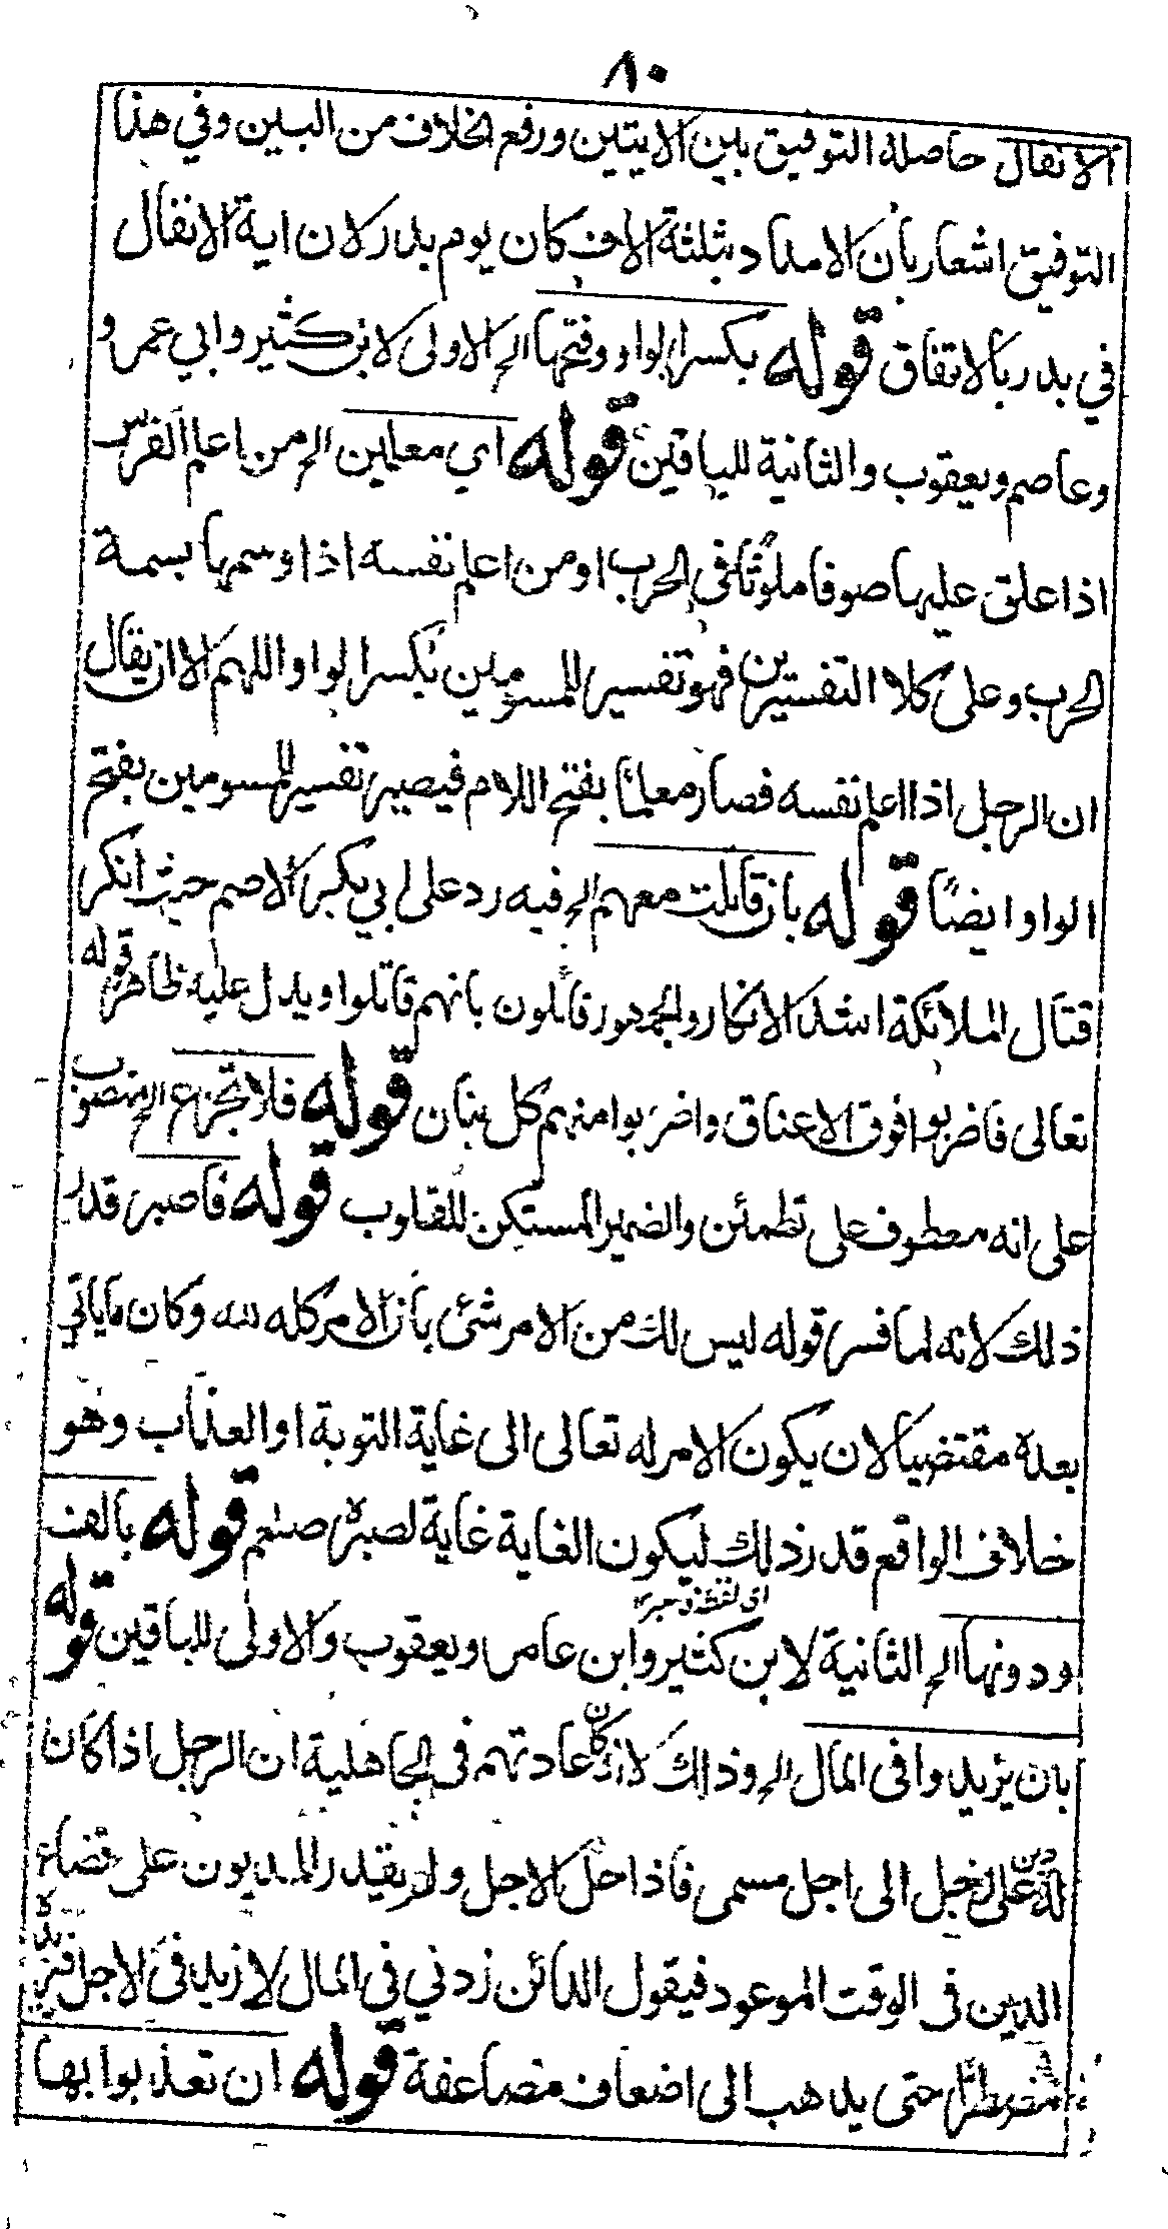 ٨٠
الانفال حاصله التوفيق بين الايتين ورفع الخلاف من البين وفي هذا
التوفيق اشعار بان الامداد بثلثة الاف كان يوم بدر لان اية الانفال
في بدر بالاتفاق قوله بكسر الواو وفتحها الخ الاولى لابن كثير وابي عمرو
وعاصم ويعقوب والثانية للباقين قوله اي معلمين الخ من اعلم الفرس
اذا علق عليها صوفا ملونًا في الحرب او من اعلم نفسه اذا وسمها بسمة
الحرب وعلى كلا التفسيرين فهو تفسير للمسومين بكسر الواو اللهم الا ان يقال
ان الرجل اذا اعلم نفسه فصار معلمًا بفتح اللام فيصير تفسير للمسومين بفتح
الواو ايضًا قوله بان قاتلت معهم الخ فيه رد على ابي بكر الاصم حيث انكر
قتال الملائكة اشد الانكار والجمهور قائلون بانهم قاتلوا ويدل عليه ظاهر قوله
تعالى فاضربوا فوق الاعناق واضربوا منهم كل بنان قوله فلا تجزع الخ منصوب
على انه معطوف على تطمئن والضمير المستكن للقلوب قوله فاصبر قدر
ذلك لانه لما فسر قوله ليس لك من الامر شئ بان الامر كله لله وكان ما ياتي
بعده مقتضيا لان يكون الامر له تعالى الى غاية التوبة او العذاب وهو
خلاف الواقع قدر ذلك ليكون الغاية غاية لصبره صلعم قوله بالف
ودونها الخ الثانية لابن كثير وابن عامر ويعقوب والاولى للباقين قوله
بان يزيدوا في المال الخ وذلك لانه كان عادتهم في الجاهلية ان الرجل اذا كان
له دين على رجل الى اجل مسمى فاذا حل الاجل ولم يقدر المديون على قضائه
الدين في الوقت الموعود فيقول الدائن زدني في المال لازيد في الاجل فيزيده
مضطرًا حتى يذهب الى اضعاف مضاعفة قوله ان تعذبوا بها